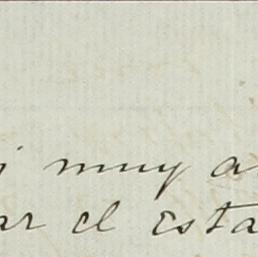 muy a
ar el esta